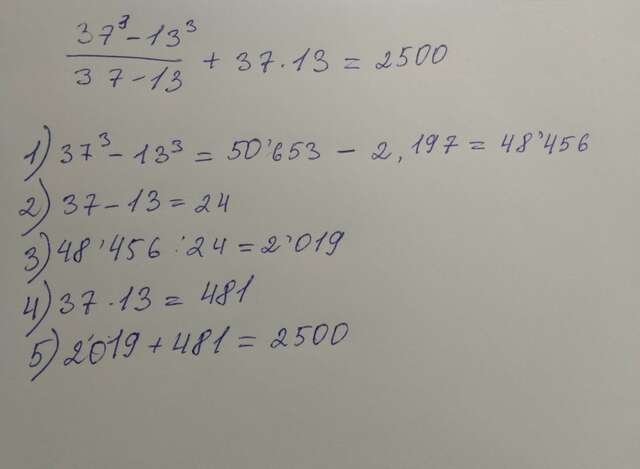 37³ - 13³
37 - 13 + 37 · 13 = 2500
1) 37³ - 13³ = 50'653 - 2,197 = 48'456
2) 37 - 13 = 24
3) 48'456 : 24 = 2'019
4) 37 · 13 = 481
5) 2'019 + 481 = 2500